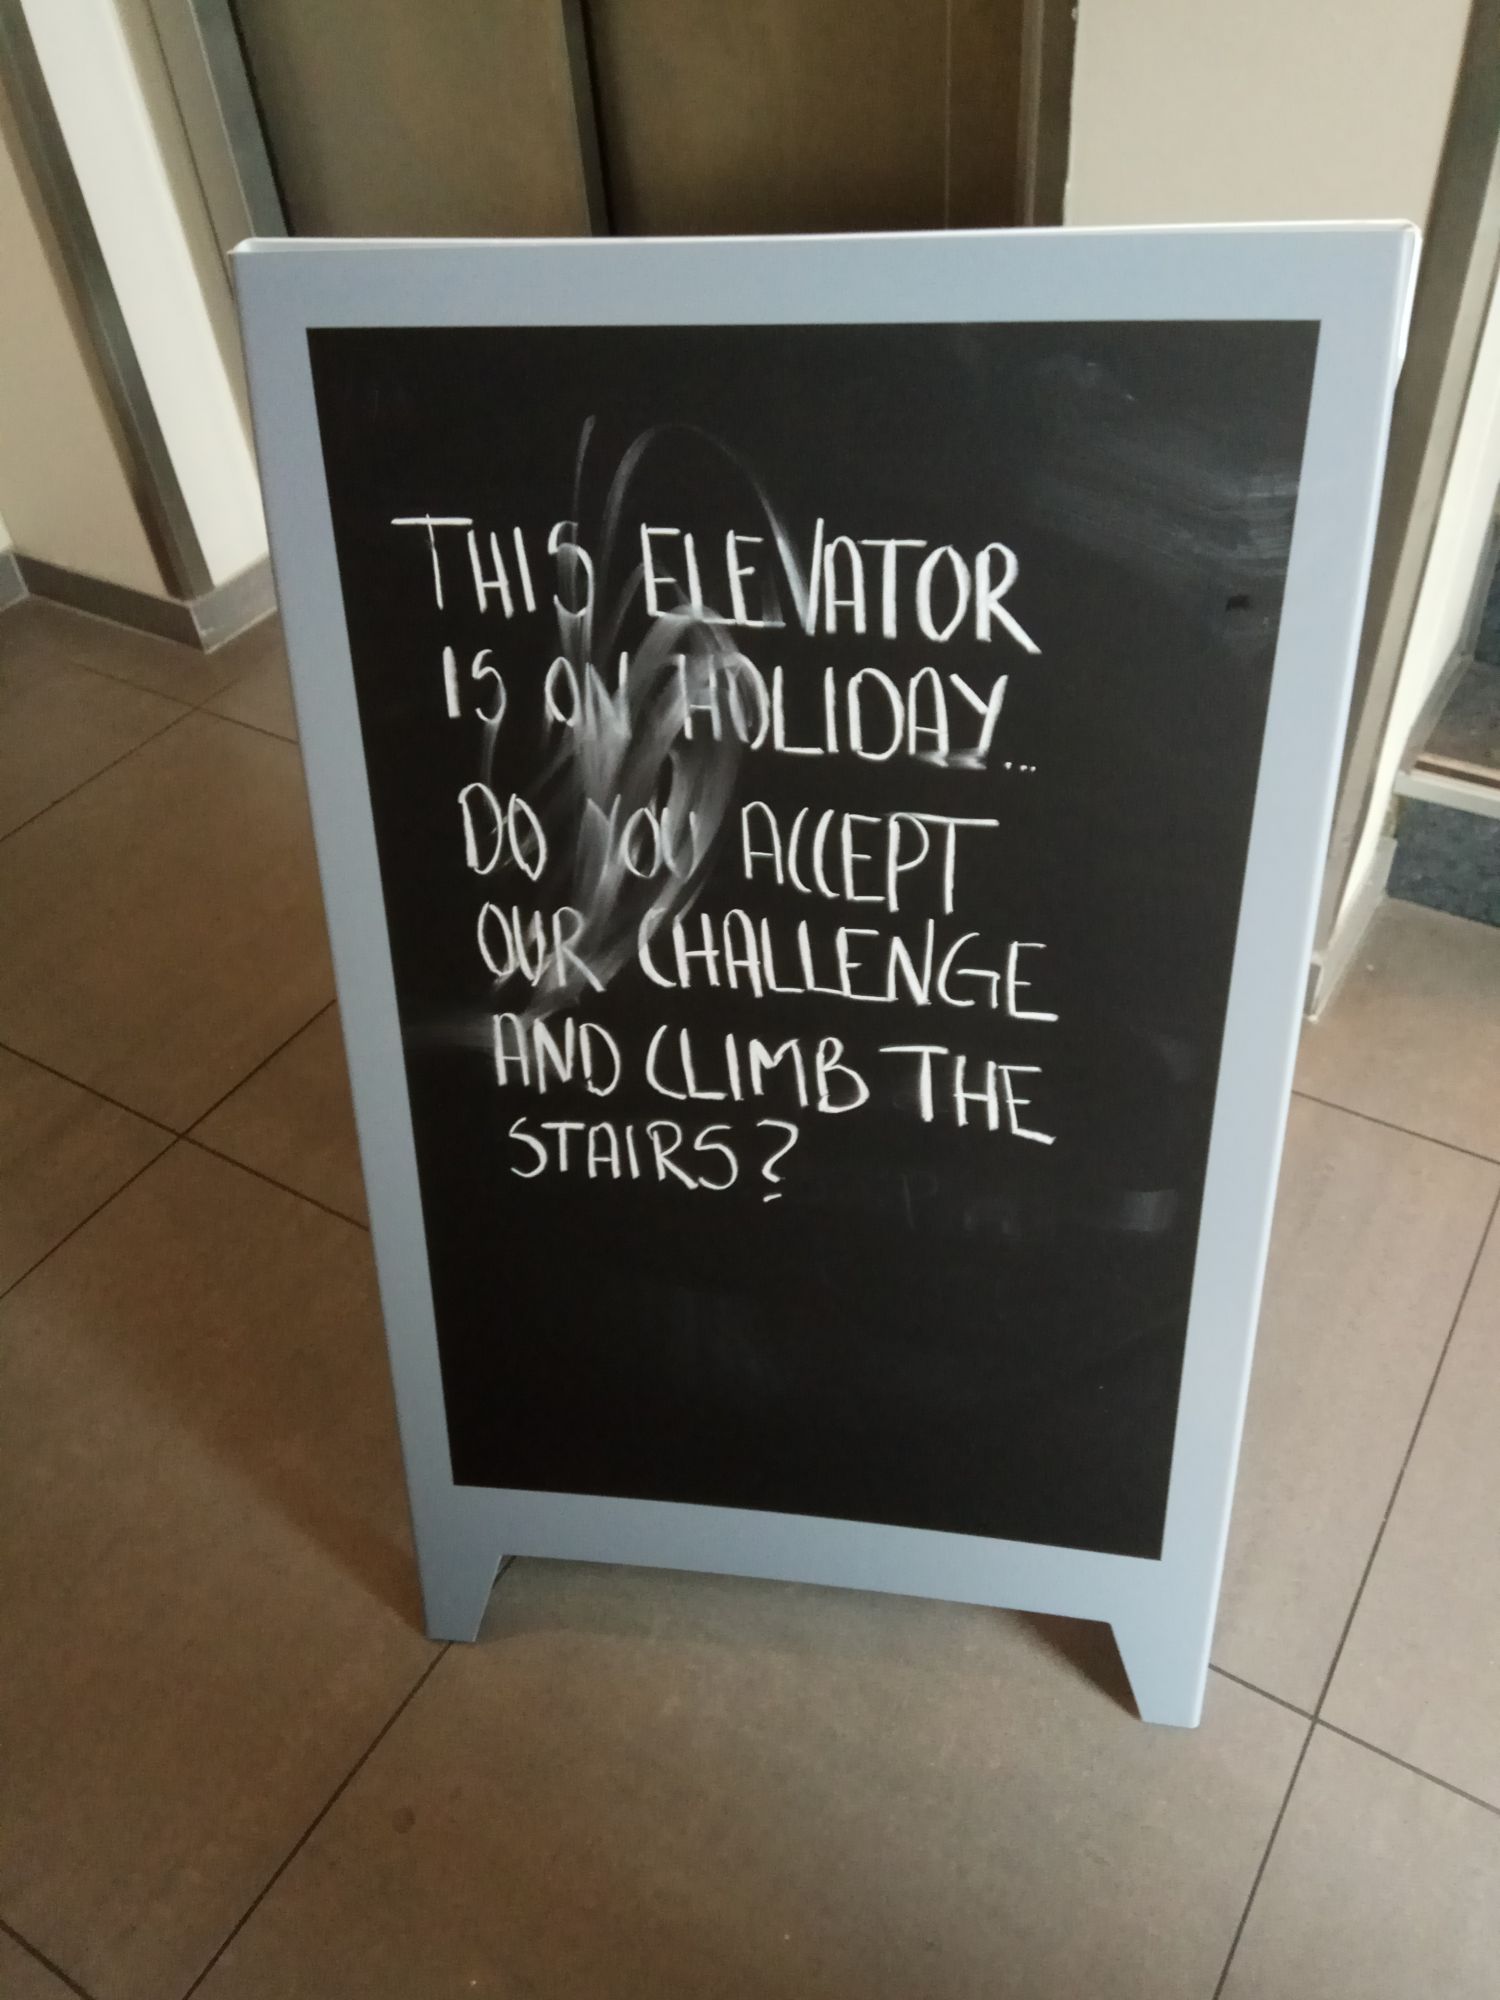 THIS ELEVATOR
IS ON HOLIDAY...
DO YOU ACCEPT
OUR CHALLENGE
AND CLIMB THE
STAIRS?